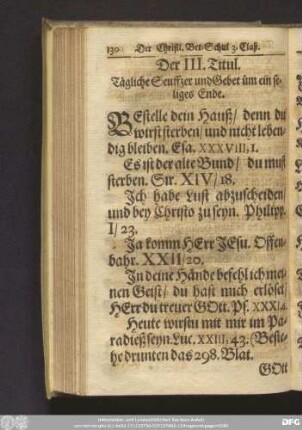 130 Der Christl. Bet-Schul 3. Claß.
Der III. Titul.
Tägliche Seuffzer und Gebet üm ein se-
liges Ende.
BEstelle dein Hauß/ denn du
wirst sterben/ und nicht leben-
dig bleiben. Esa. XXXVIII, 1.
Es ist der alte Bund/ du must
sterben. Sir. XIV/ 18.
Ich habe Lust abzuscheiden/
und bey Christo zu seyn. Philipp.
I/ 23.
Ja komm HErr JEsu. Offen-
bahr. XXII/ 20.
In deine Hände befehl ich mei-
nen Geist/ du hast mich erlöset
HErr du treuer GOtt. Ps. XXXI/6.
Heute wirstu mit mir im Pa-
radieß seyn. Luc. XXIII; 43. (Besie-
he drunten das 298. Blat.
GOtt